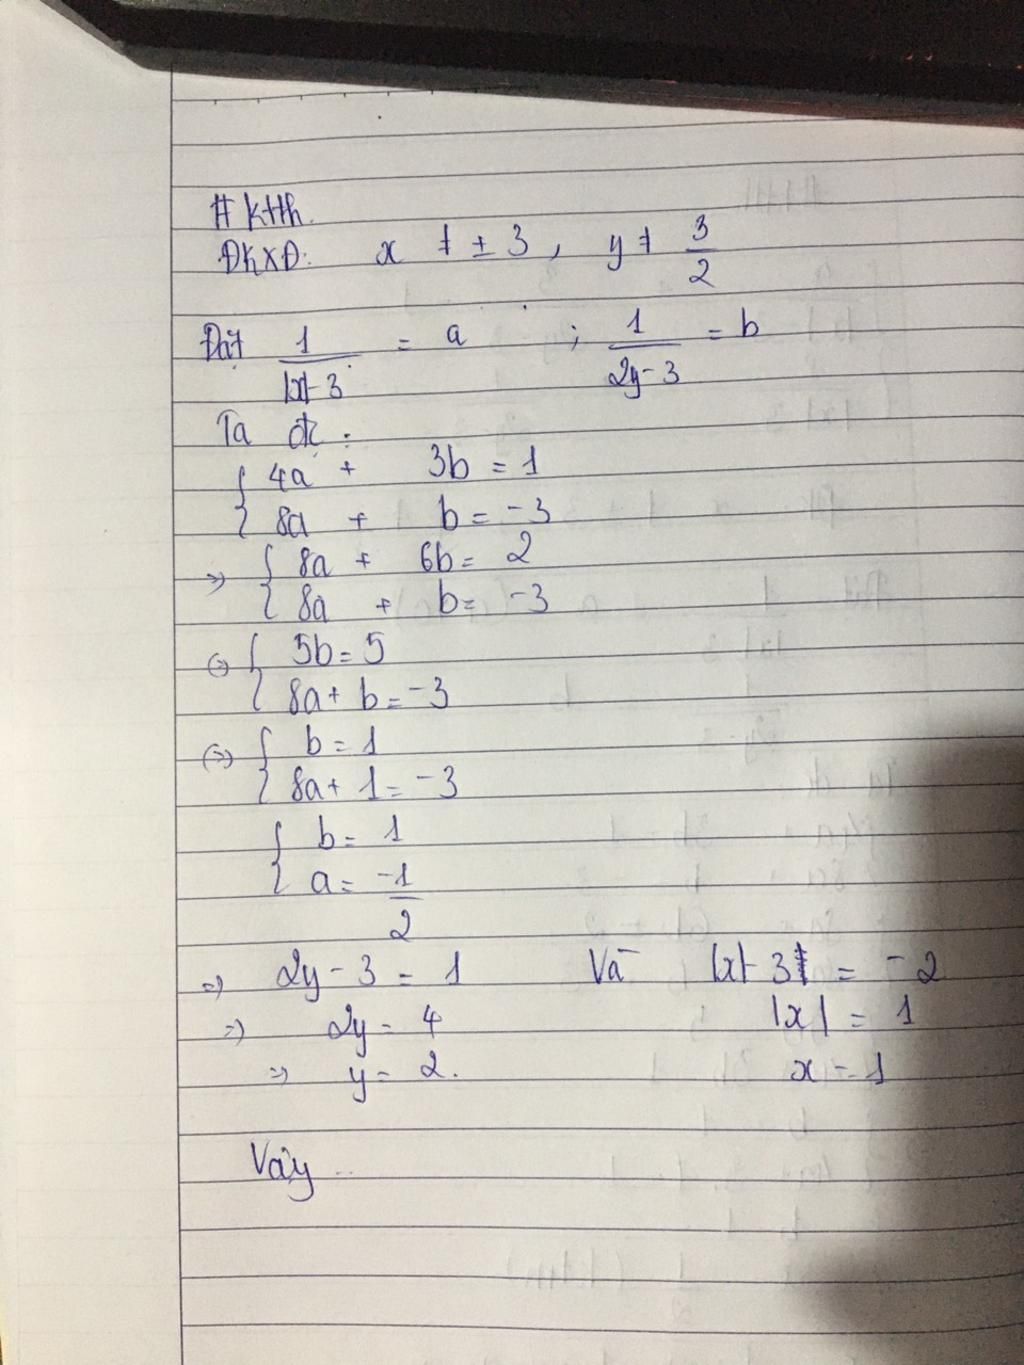 # kttħ.
ĐKXĐ: x ≠ ± 3, y ≠ 3/2
Đặt 1/(|x|-3) = a ; 1/(2y-3) = b
Ta đc :
{ 4a + 3b = 1
8a + b = -3
=> { 8a + 6b = 2
8a + b = -3
(=) { 5b = 5
8a + b = -3
(=>) { b = 1
8a + 1 = -3
{ b = 1
a = -1/2
=> 2y - 3 = 1 Và |x| - 3 = -2
=> 2y = 4 |x| = 1
=> y = 2. x = 1
Vậy ..